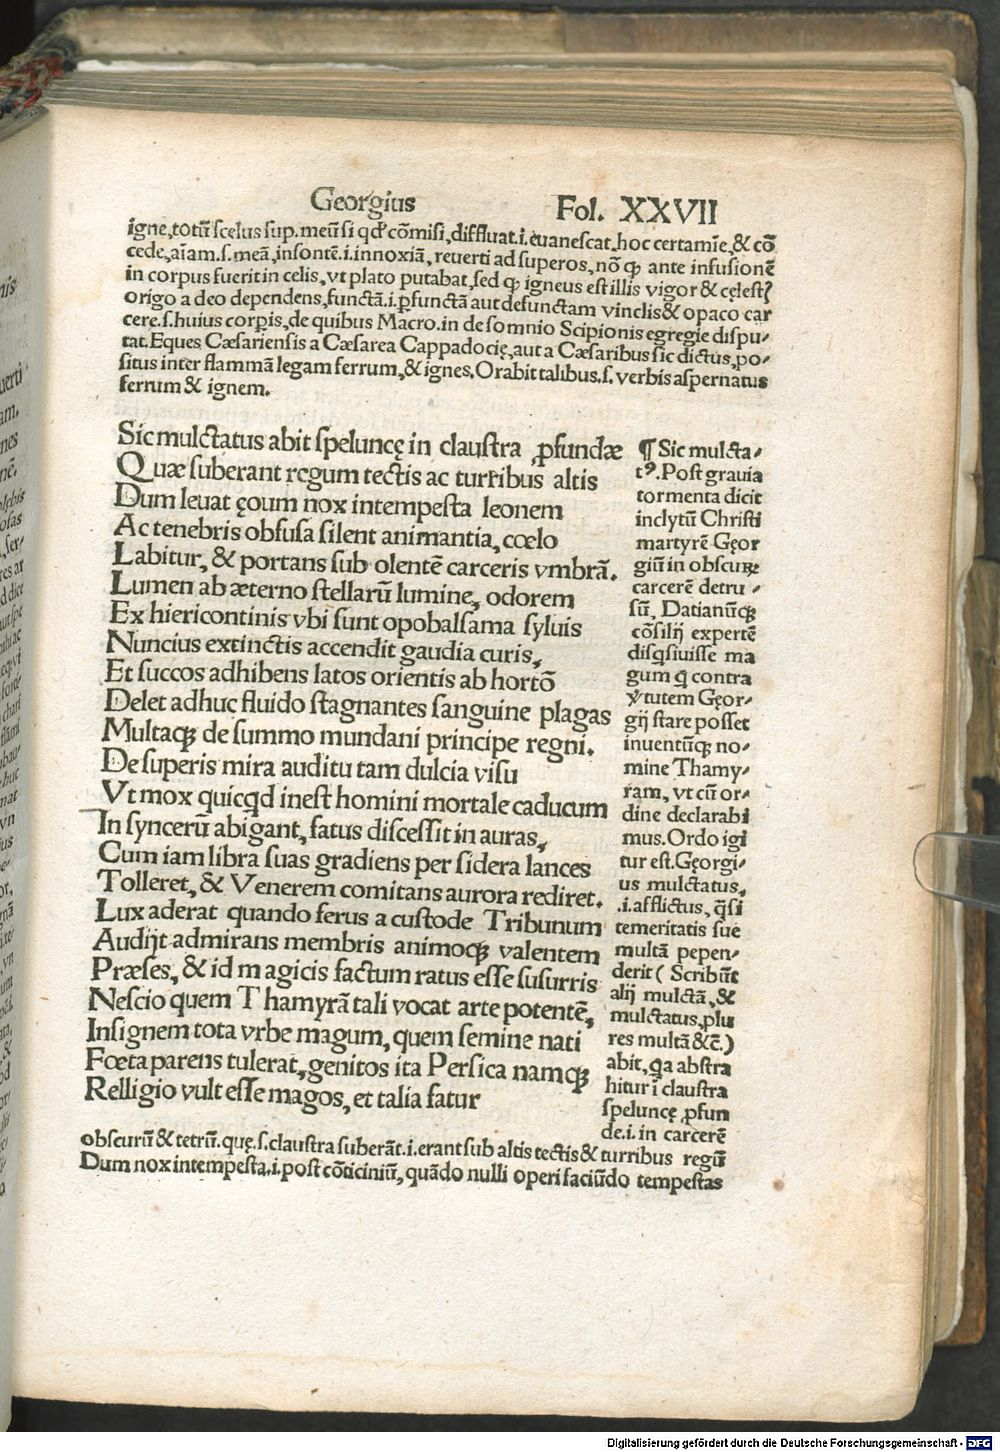 Georgius Fol. XXVII
igne, totũ scelus sup. meũ si qđ cõmisi, diffluat .i. euanescat, hoc certamĩe, & cõ
cede, aĩam .s. meã, insontẽ .i. innoxiã, reuerti ad superos, nõ ꝙ ante infusionẽ
in corpus fuerit in celis, vt plato putabat, sed ꝙ igneus est illis vigor & cęlestꝭ
origo a deo dependens, functã .i. ꝑfunctã aut defunctam vinclis & opaco car
cere .s. huius corꝑis, de quibus Macro. in de somnio Scipionis egregie dispu-
tat. Eques Cæsariensis a Cæsarea Cappadocię, aut a Cæsaribus sic dictus, po-
situs inter flammã legam ferrum, & ignes. Orabit talibus .s. verbis aspernatus
ferrum & ignem.
Sic mulctatus abit speluncę in claustra ꝓfundæ
Quæ suberant regum tectis ac turribus altis
Dum leuat ęoum nox intempesta leonem
Ac tenebris obfusa silent animantia, cœlo
Labitur, & portans sub olentẽ carceris vmbrã.
Lumen ab æterno stellarũ lumine, odorem
Ex hiericontinis vbi sunt opobalsama syluis
Nuncius extinctis accendit gaudia curis,
Et succos adhibens latos orientis ab hortõ
Delet adhuc fluido stagnantes sanguine plagas
Multaqꝫ de summo mundani principe regni.
De superis mira auditu tam dulcia visu
Vt mox quicqd inest homini mortale caducum
In syncerũ abigant, fatus discessit in auras,
Cum iam libra suas gradiens per sidera lances
Tolleret, & Venerem comitans aurora rediret.
Lux aderat quando ferus a custode Tribunum
Audijt admirans membris animoqꝫ valentem
Præses, & id magicis factum ratus esse susurris
Nescio quem Thamyrã tali vocat arte potentẽ,
Insignem tota vrbe magum, quem semine nati
Fœta parens tulerat, genitos ita Persica namqꝫ
Relligio vult esse magos, et talia fatur
¶ Sic mulcta-
tꝰ. Post grauia
tormenta dicit
inclytũ Christi
martyrẽ Gęor
giũ in obscurẽ
carcerẽ detru-
sũ, Datianũqꝫ
cõsilij expertẽ
disqsiuisse ma
gum q̃ contra
v̓tutem Gęor-
gij stare posset
inuentũqꝫ no-
mine Thamy-
ram, vt cũ or-
dine declarabi
mus. Ordo igi
tur est. Gęorgi-
us mulctatus,
.i. afflictus, q̃si
temeritatis sue
multã pepen-
derit ( Scribũt
alij mulctã, &
mulctatus, plu
res multã &c̃.)
abit, q̃a abstra
hitur ĩ claustra
speluncę ꝓfun
de .i. in carcerẽ
obscurũ & tetrũ. quę .s. claustra suberãt .i. erant sub altis tectis & turribus regũ
Dum nox intempesta .i. post cõticiniũ, quãdo nulli operi faciũdo tempestas
Digitalisierung gefördert durch die Deutsche Forschungsgemeinschaft - DFG